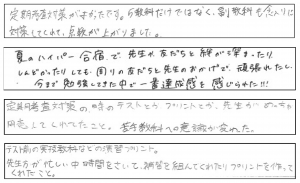 定期考査対策がよかったです。5教科だけではなく、副教科も念入りに
対策してくれて、点数が上がりました。
夏のハイパー合宿で、先生や友だちと絆が深まったり
しんどかったりしても、周りの友だちと先生のおかげで、頑張れたし、
今まで勉強してきた中で一番達成感を感じられた!!!
定期考査対策の時のテストとかプリントとかが、先生が
用意してくれてたこと。苦手教科への意識が変わった。
テスト前の実技教科などの演習プリント。
先生方が忙しい中時間をさいて、補習を組んでくれたりプリントを作って
くれたこと。